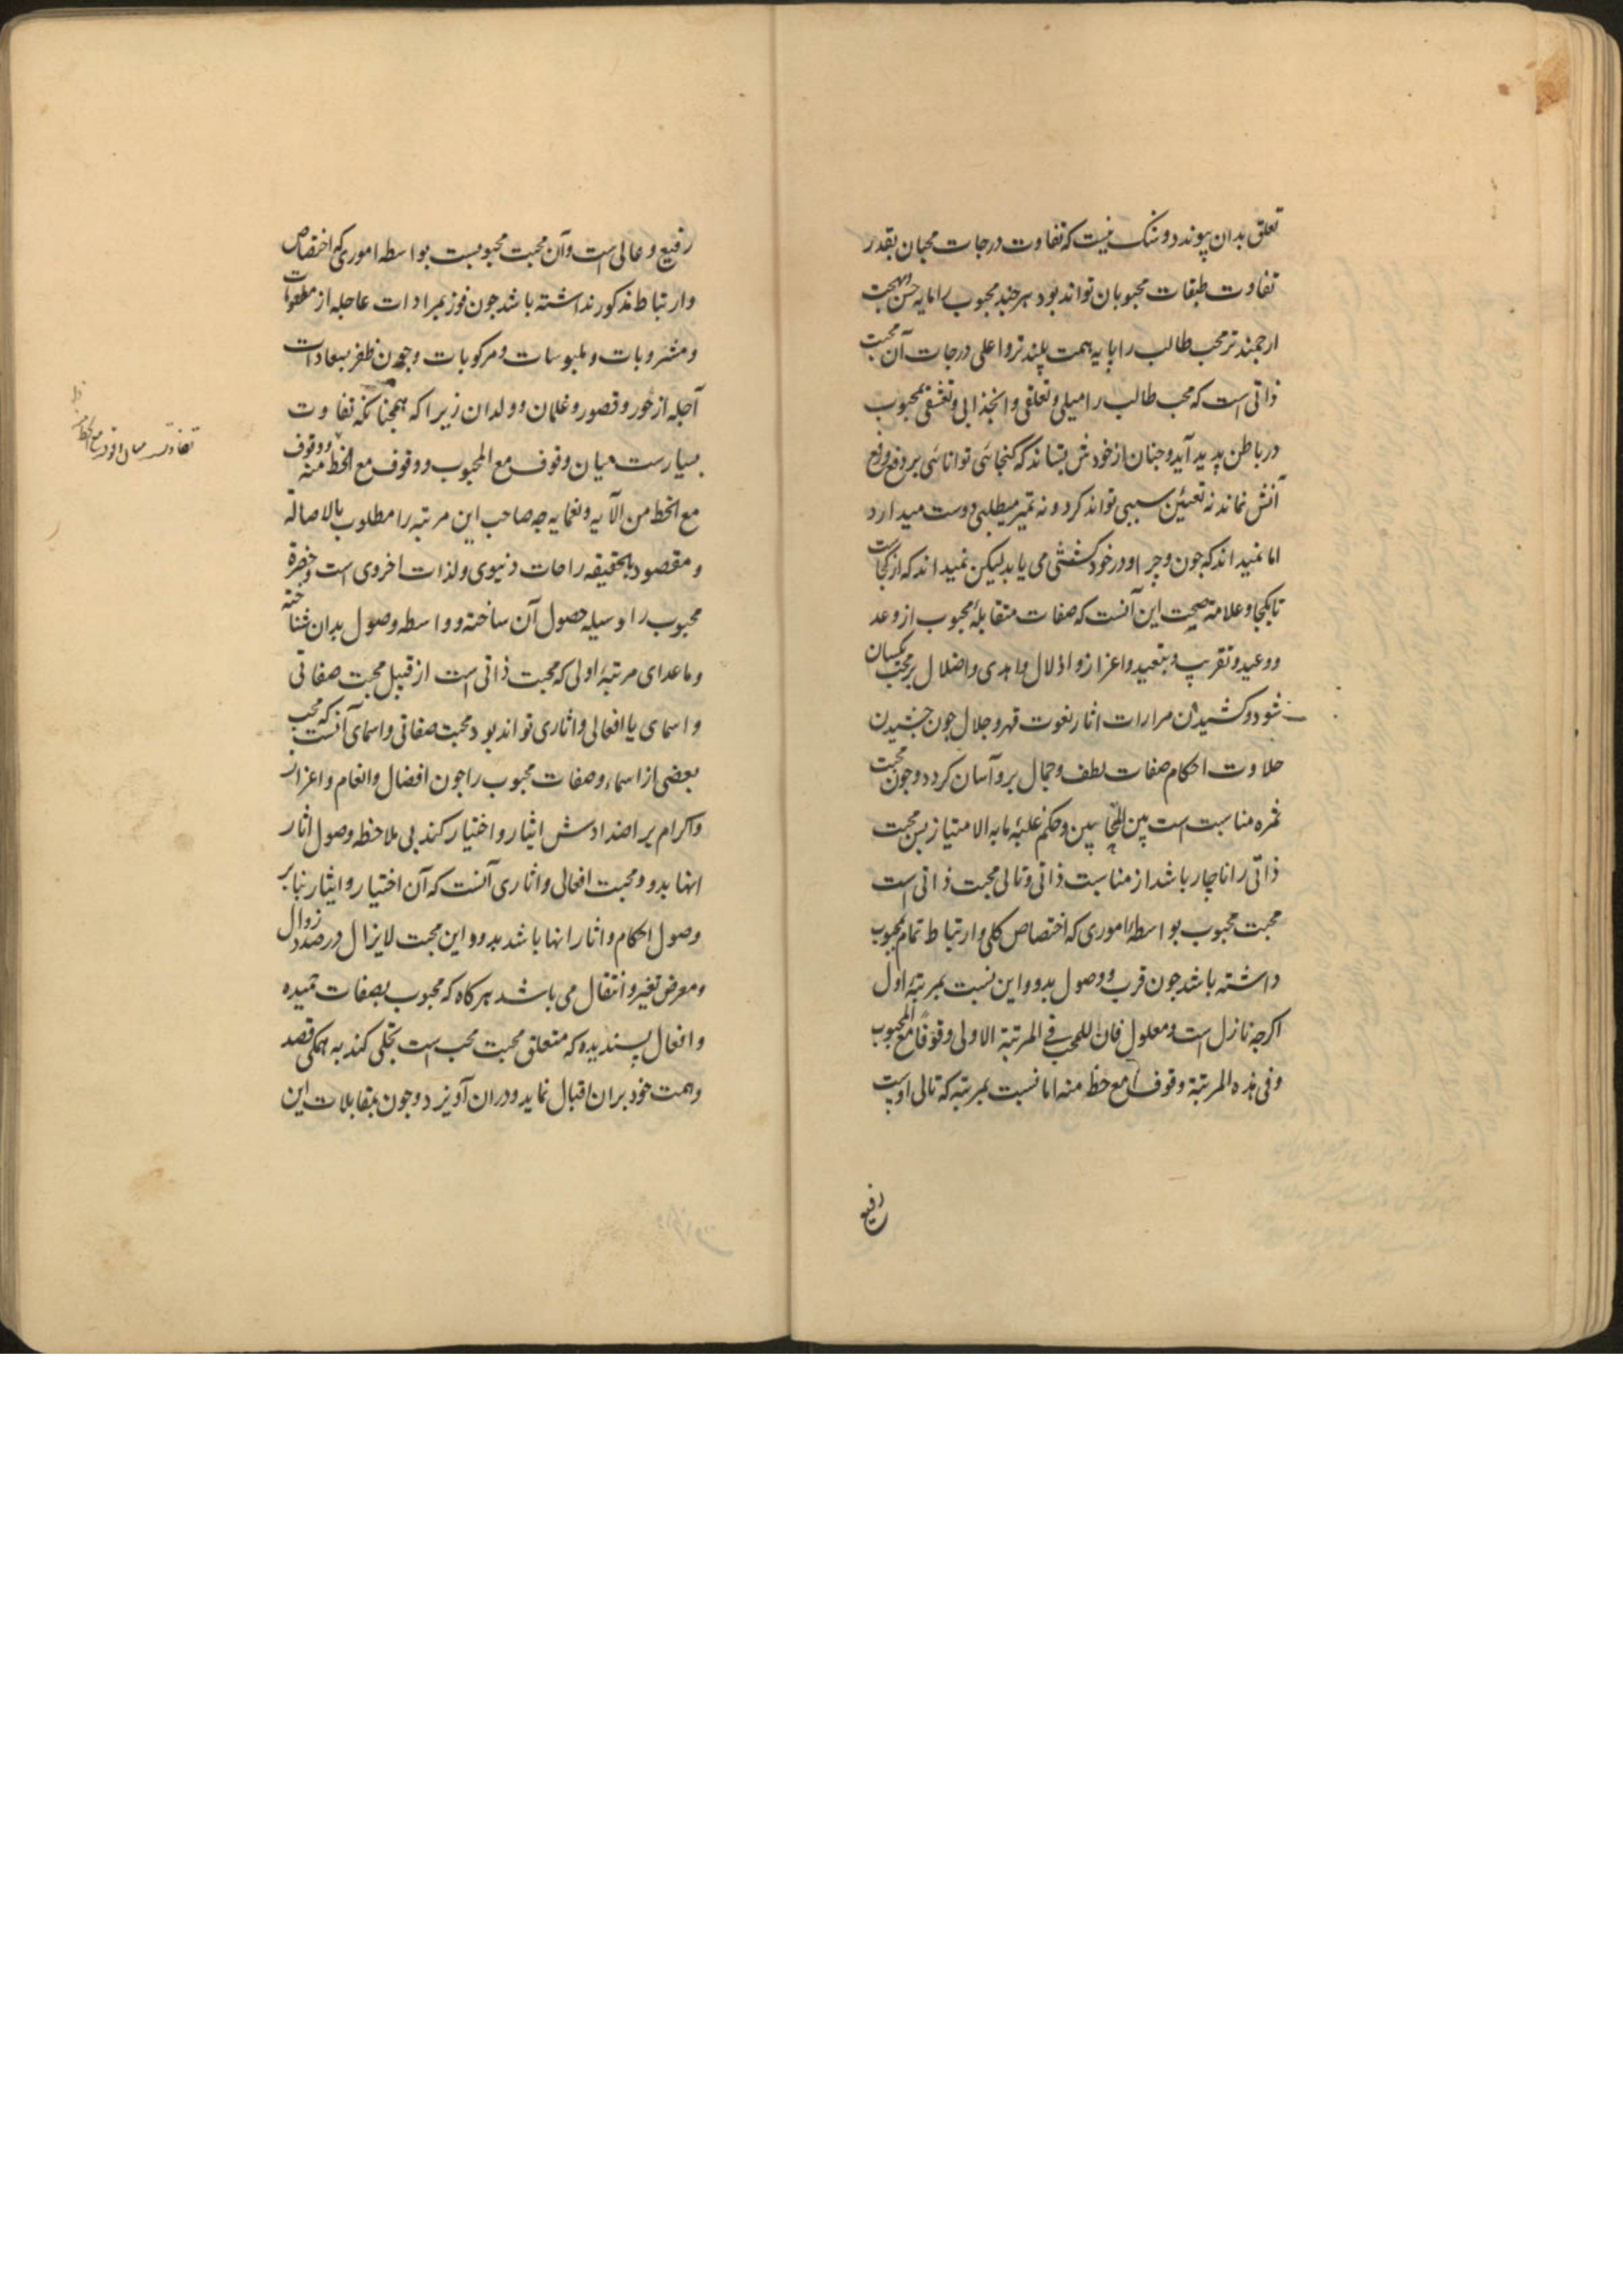 تعلق بدان پیوندد و شک نیست که تفاوت درجات محبان بقدر
تفاوت طبقات محبوبان تواند بود هر چند محبوب را مایه حسن و بهجت
ارجمندتر محب طالب را پایه همت بلندتر و اعلی درجات آن محبت
ذاتی است که محب طالب را میلی و تعلقی و انجذابی و تعشقی بمحبوب
در باطن پدید آید و چنان از خودش بستاند که گنجائی توانائی بر دفع و رفع
آنش نماند نه تعیین سببی تواند کرد و نه تمیز مطلبی دوست میدارد
اما نمیداند که چون و چرا و در خود کششی می یابد لیکن نمیداند که از کجاست
تا بکجا و علامه صحت این آنست که صفات متقابله محبوب از وعد
و وعید و تقریب و تبعید و اعزاز و اذلال و اهدی و اضلال بر محب یکسان
شود و کشیدن مرارات اثار نعوت قهر و جلال چون چشیدن
حلاوت احکام صفات لطف و جمال برو آسان کردد و چون محبت
ثمره مناسبت است بین المتحابین و حکم غلبه ما به الامتیاز پس محبت
ذاتی را ناچار باشد از مناسبت ذاتی و تالی محبت ذاتی است
محبت محبوب بواسطه اموری که اختصاص کلی و ارتباط تمام بمحبوب
داشته باشد چون قرب و وصول بدو و این نسبت بمرتبه اول
اگرچه نازل است و معلول فان للمحب فی المرتبة الاولی وقوفا مع المحبوب
و فی هذه المرتبة وقوف مع حظ منه اما نسبت بمرتبه که تالی اوست
رفیع
رفیع و عالی است و آن محبت محبوبست بواسطه اموری که اختصاص
و ارتباط مذکور نداشته باشد چون فوز بمرادات عاجله از مطعومات
و مشروبات و ملبوسات و مرکوبات و چون ظفر بسعادات
آجله از حور و قصور و غلمان و ولدان زیرا که همچنانکه تفاوت
بسیارست میان وقوف مع المحبوب و وقوف مع الحظ منه و وقوف
مع الحظ من آلایه و نعمایه چه صاحب این مرتبه را مطلوب بالاصاله
و مقصود بالحقیقه راحات دنیوی و لذات اخروی است و حضرة
محبوب را وسیله حصول آن ساخته و واسطه وصول بدان شناخته
و ماعدای مرتبه اولی که محبت ذاتی است از قبیل محبت صفاتی
و اسمای یا افعالی و اثاری تواند بود محبت صفاتی و اسمای آنست که محب
بعضی از اسماء و صفات محبوب را چون افضال و انعام و اعزاز
و اکرام بر اضدادش ایثار و اختیار کند بی ملاحظه وصول اثار
انها بدو و محبت افعالی و اثاری آنست که آن اختیار و ایثار بنابر
وصول احکام و اثار انها باشد بدو و این محبت لایزال در صدد زوال
و معرض تغیر و انتقال می باشد هرکاه که محبوب بصفات حمیده
و افعال پسندیده که متعلق محبت محب است تجلی کند به همکی قصد
و همت خود بران اقبال نماید و دران آویزد و چون بمقابلات این